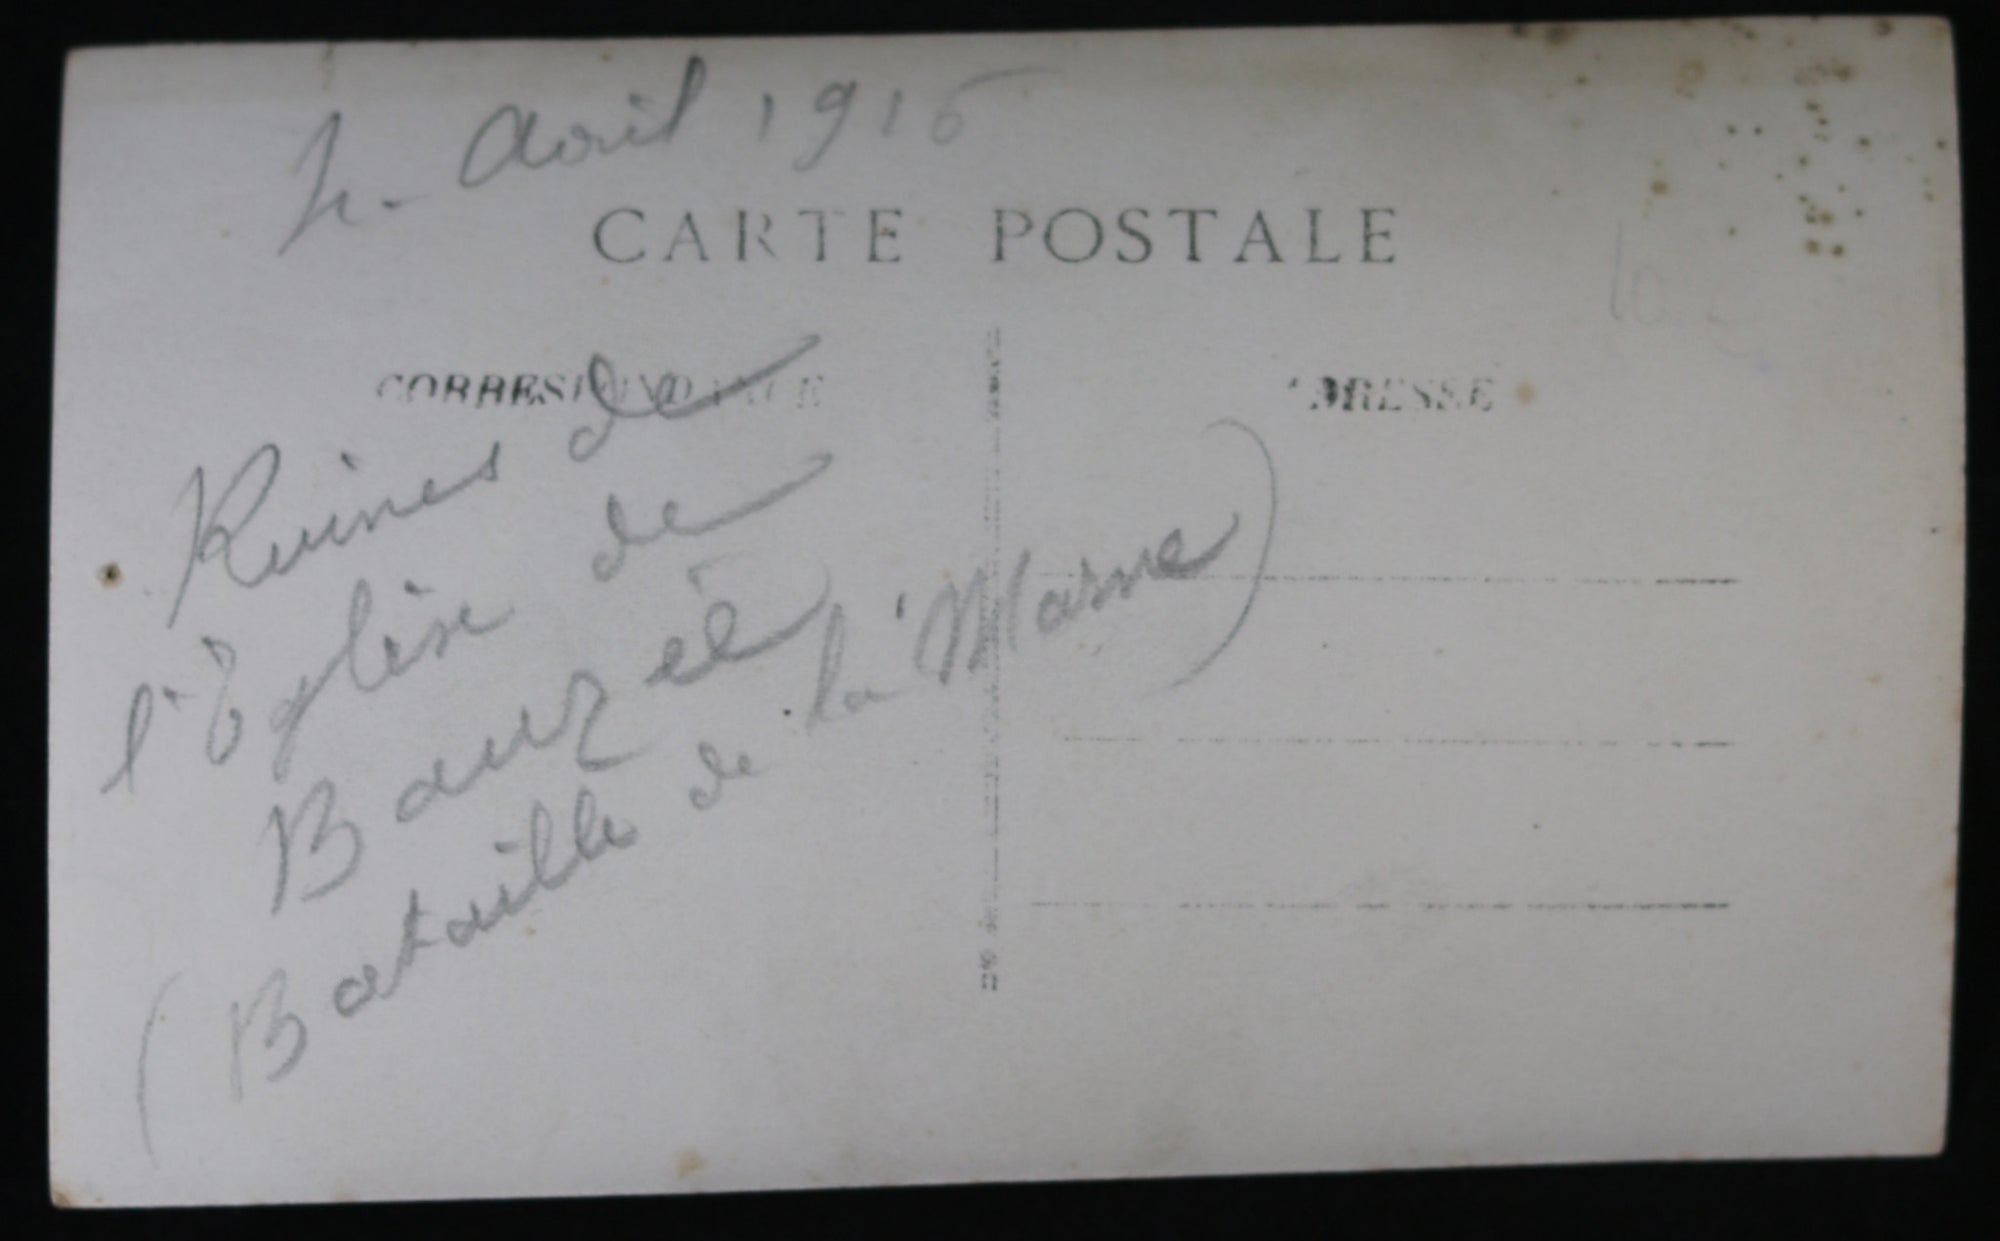 Avril 1916
CARTE POSTALE
CORRESPONDANCE
ADRESSE
Ruines de
l'Église de
Bauzée
(Bataille de la Marne)